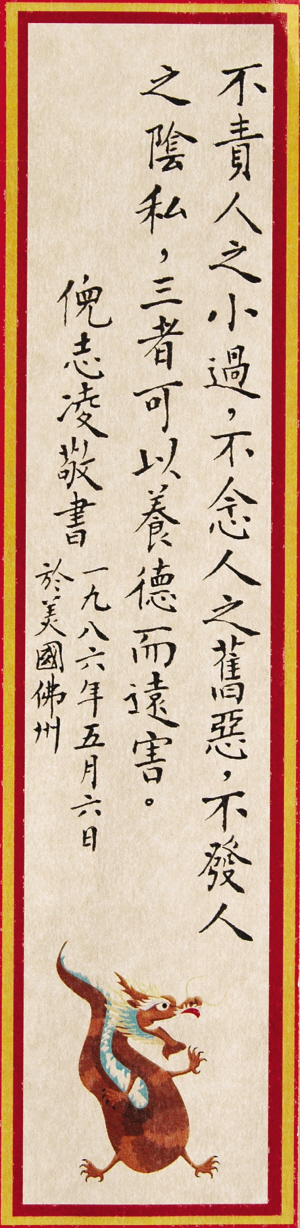 不責人之小過，不念人之舊惡，不發人
之陰私，三者可以養德而遠害。
倪志凌敬書
一九八六年五月六日
於美國佛州